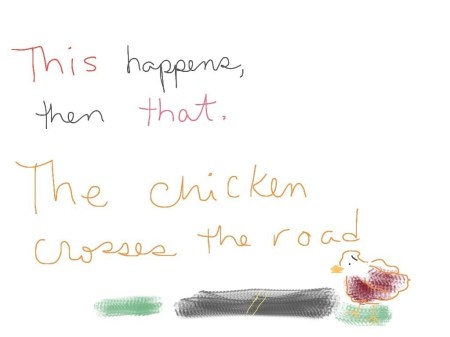 This happens,
then that.
The chicken
crosses the road